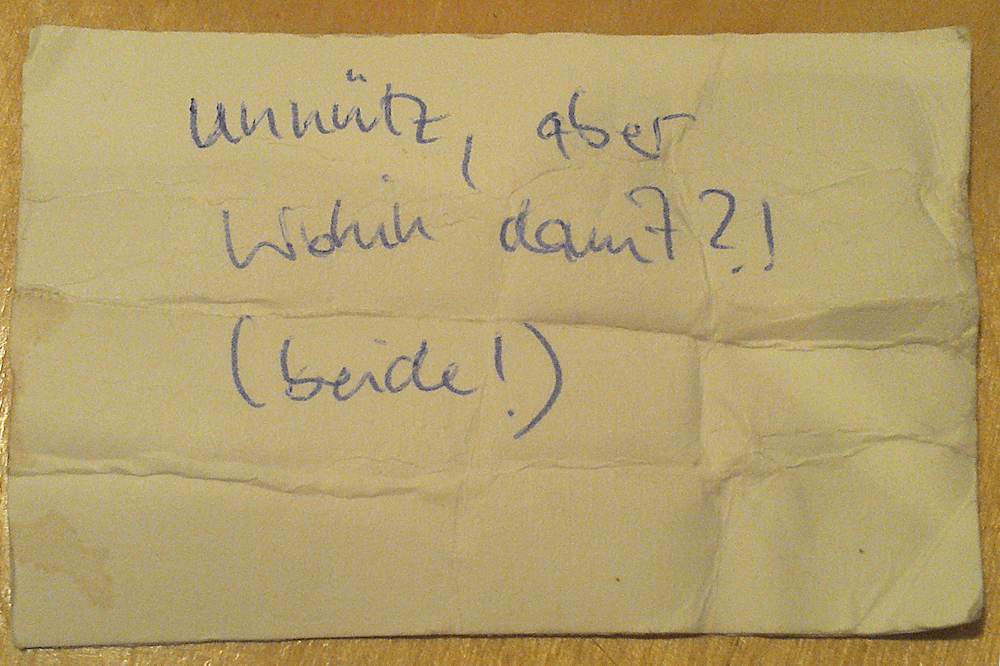 unnütz, aber
wohin damit?!
(beide!)